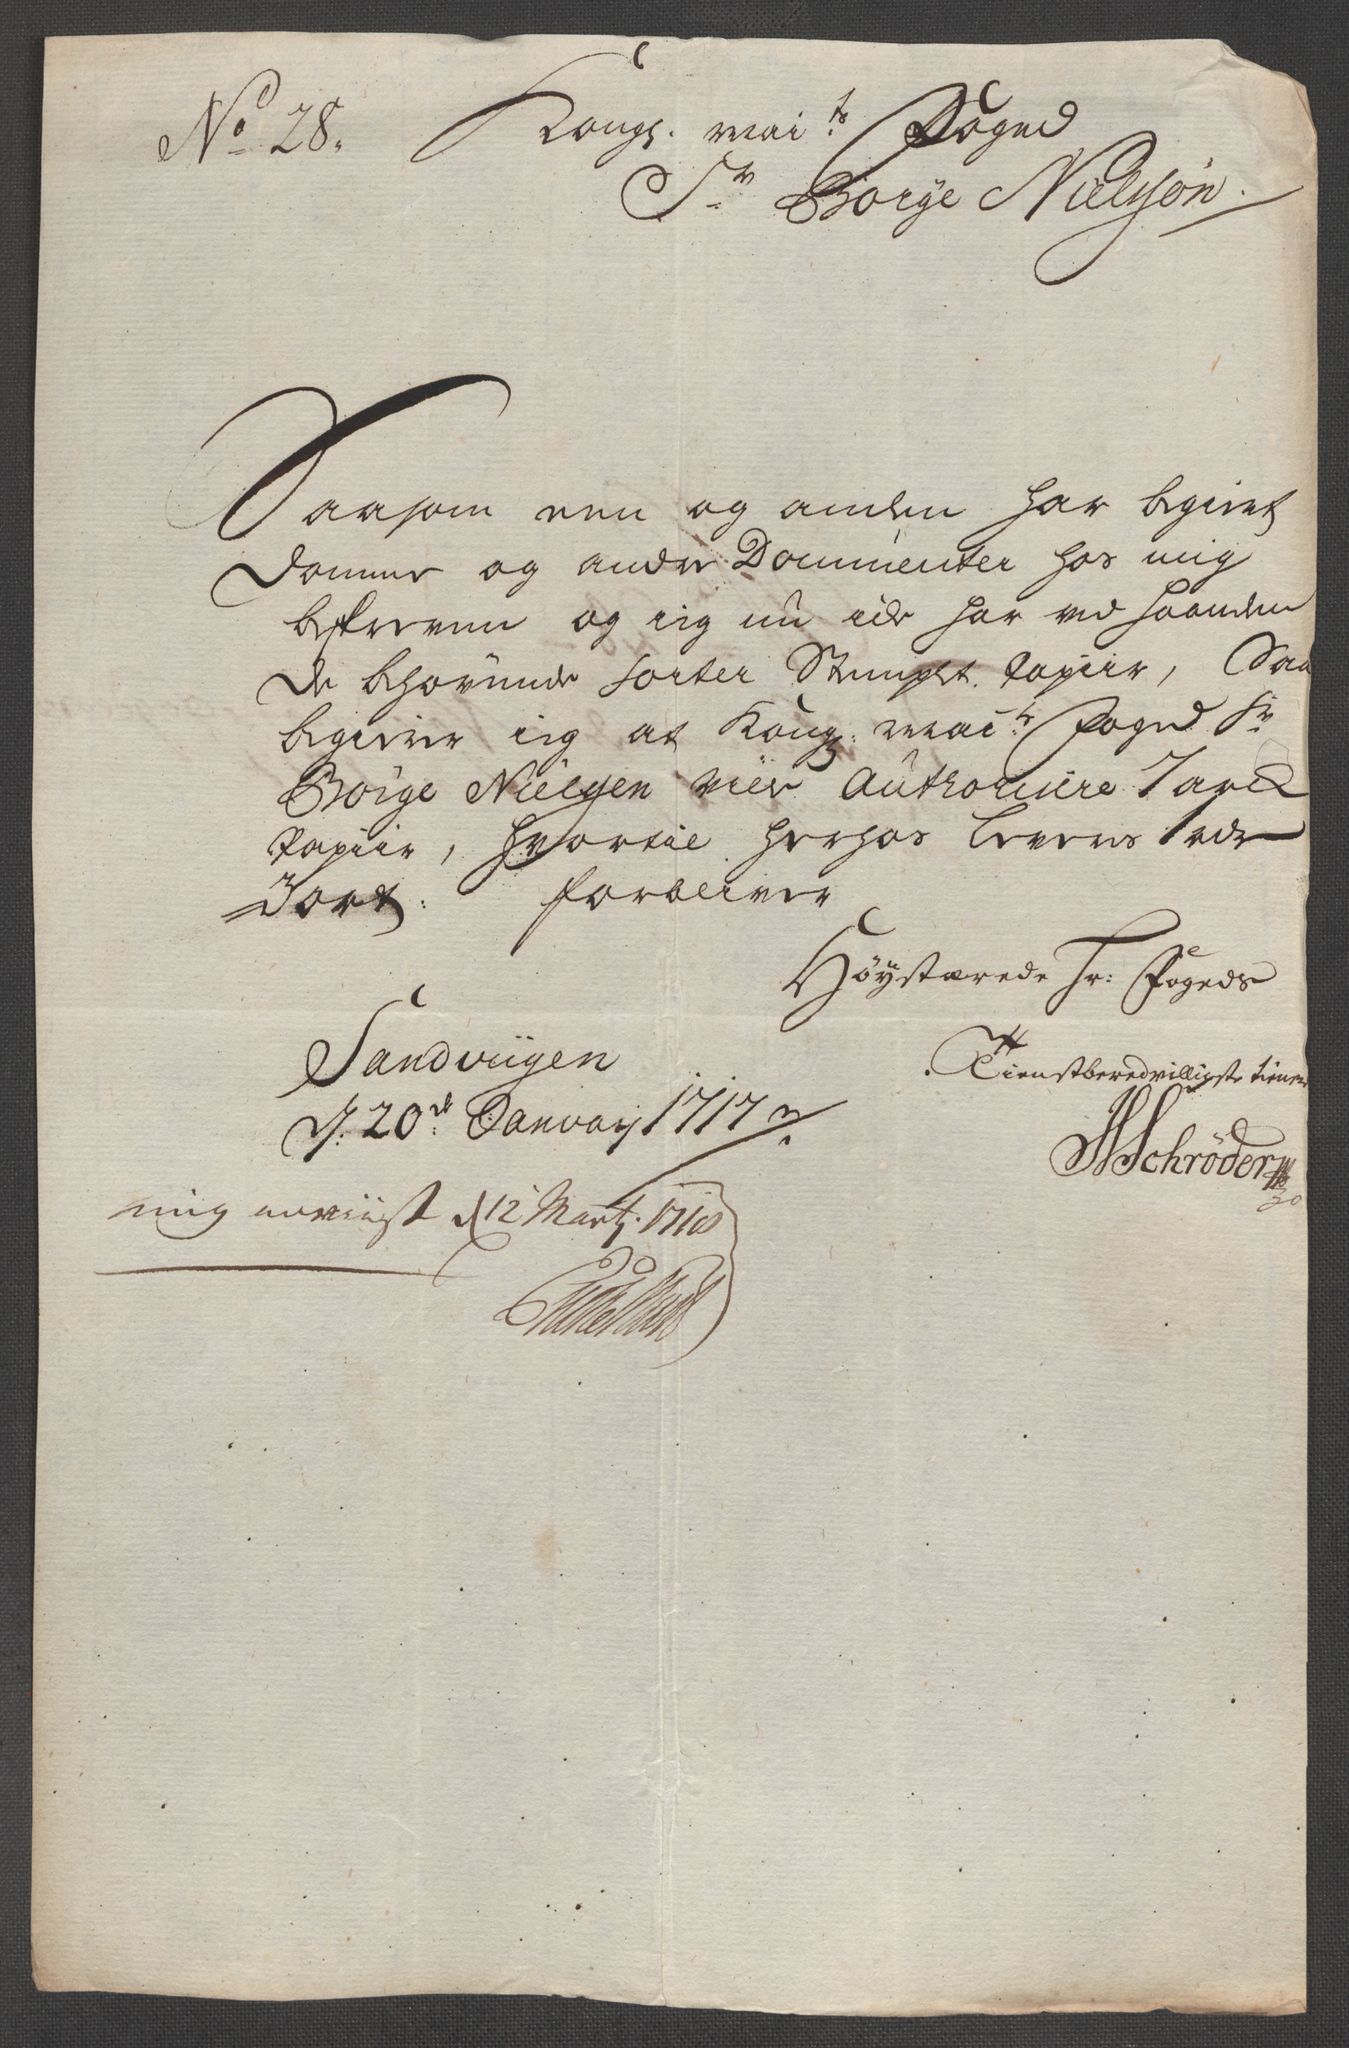 No 28. Kongl. mai:ts Foged
Sr Børge Nielsøn.
Saasom een og anden har begiert
Domme og andre Documenter hos mig
beskreven og ieg nu icke har ved haanden
De behøvende sorter Stemplet papiir, Saa
begierer ieg at Kongl: mai:ts Foged Sr
Børge Nielsen ville Authorisere 1 arck
papiir, hvortil herhos leveris 1 ark
Forbliver
Høystærede Hr: Fogeds
Tienstberedvilligste tiener
Schrøder
Sandviigen
d: 20de Januarij 1717
mig anviist d 12 Martj: 1718